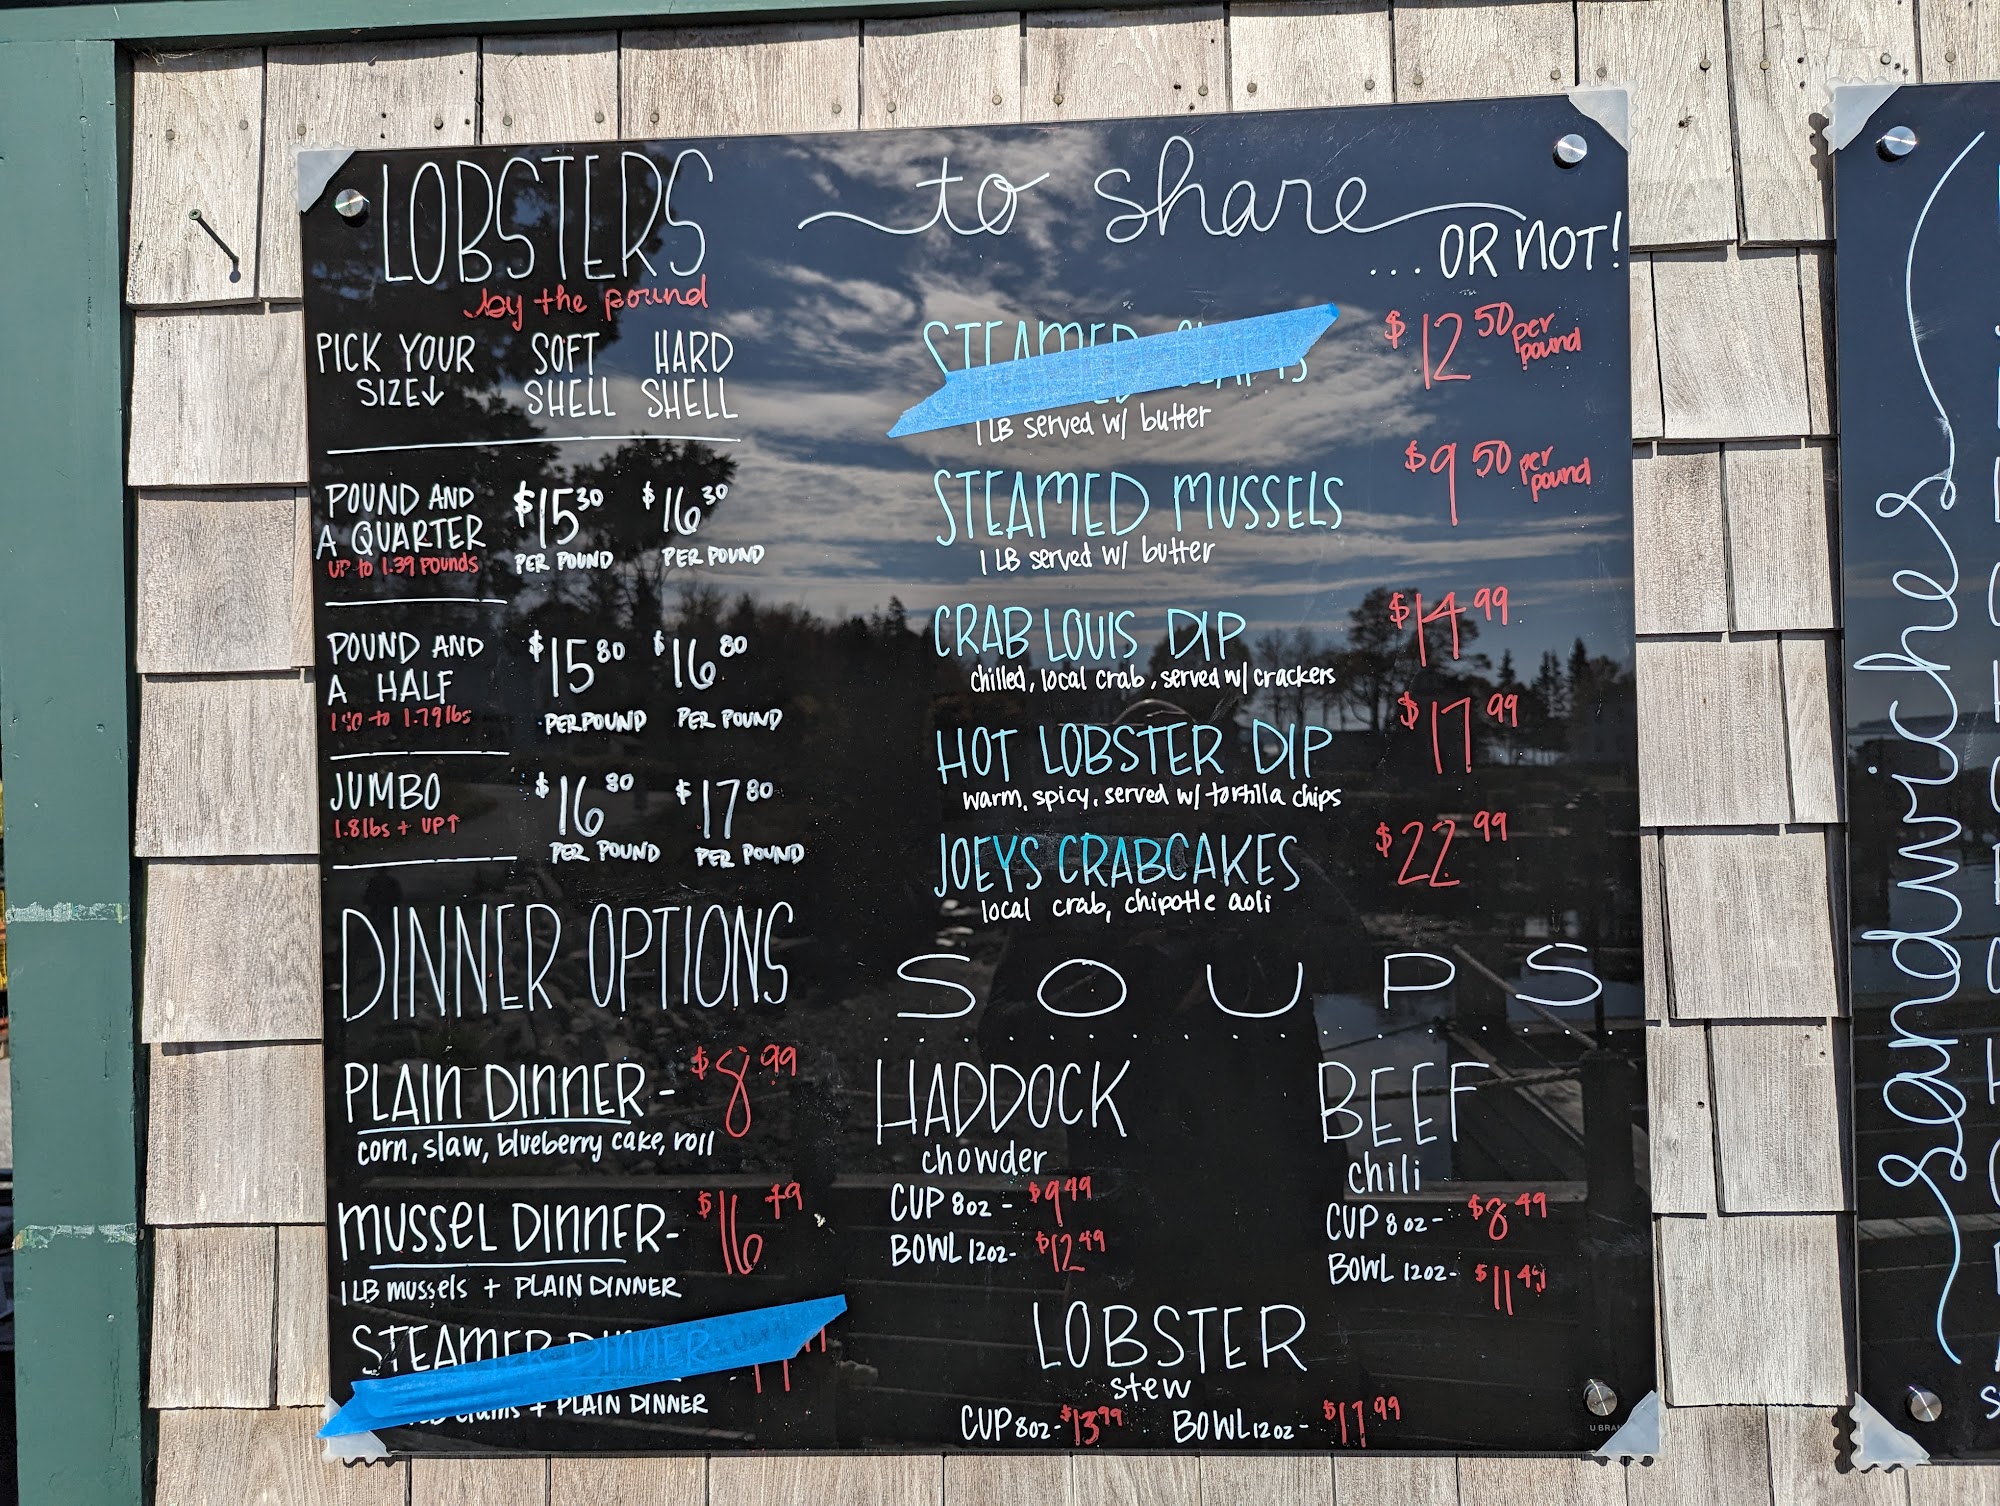 LOBSTERS
by the pound
PICK YOUR SIZE↓
SOFT SHELL
HARD SHELL
POUND AND
A QUARTER
UP to 1.39 Pounds
$15.30 PER POUND
$16.30 PER POUND
POUND AND
A HALF
1.40 to 1.79 lbs
$15.80 PER POUND
$16.80 PER POUND
JUMBO
1.8lbs + UP↑
$16.80 PER POUND
$17.80 PER POUND
DINNER OPTIONS
PLAIN DINNER - $8.99
corn, slaw, blueberry cake, roll
MUSSEL DINNER -
1 LB mussels + PLAIN DINNER
STEAMER DINNER
clams + PLAIN DINNER
to share
...OR NOT!
STEAMED $12.50 per pound
1 LB served w/ butter
STEAMED MUSSELS $9.50 per pound
1 LB served w/ butter
CRAB LOUIS DIP $14.99
chilled, local crab, served w/ crackers
HOT LOBSTER DIP $17.99
warm, spicy, served w/ tortilla chips
JOEYS CRABCAKES $22.99
local crab, chipotle aoli
SOUPS
HADDOCK
chowder
CUP 8oz - $9.49
BOWL 12oz - $12.49
BEEF
chili
CUP 8oz - $8.49
BOWL 12oz - $11.49
LOBSTER
stew
CUP 8oz - $13.99 BOWL 12oz - $17.99
sandwiches